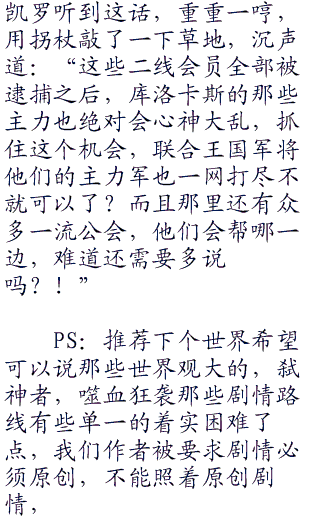 凯罗听到这话，重重一哼，
用拐杖敲了一下草地，沉声
道：“这些二线会员全部被
逮捕之后，库洛卡斯的那些
主力也绝对会心神大乱，抓
住这个机会，联合王国军将
他们的主力军也一网打尽不
就可以了？而且那里还有众
多一流公会，他们会帮哪一
边，难道还需要多说
吗？！”
PS：推荐下个世界希望
可以说那些世界观大的，弑
神者，噬血狂袭那些剧情路
线有些单一的着实困难了
点，我们作者被要求剧情必
须原创，不能照着原创剧
情，